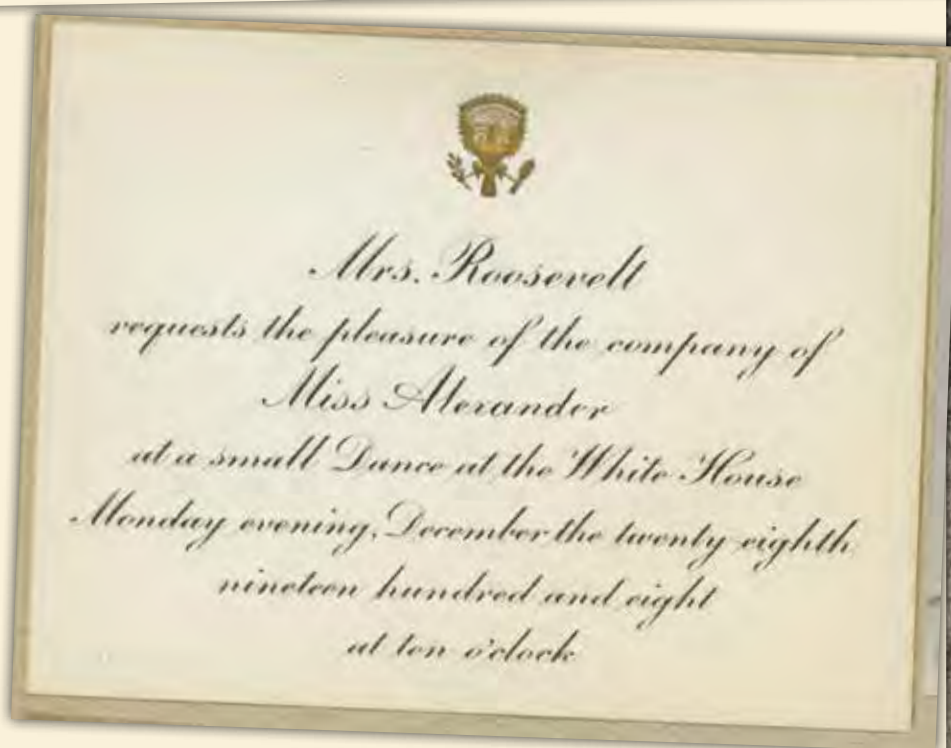 Mrs. Roosevelt
requests the pleasure of the company of
Miss Alexander
at a small Dance at the White House
Monday evening, December the twenty eighth
nineteen hundred and eight
at ten o'clock